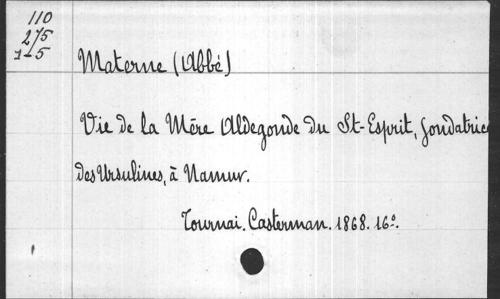 110
275
7-5
Materne (Abbé)
Vie de la Mère Aldegonde du St-Esprit, fondatrice
des Ursulines, à Namur.
Tournai. Casterman. 1868. 16°.